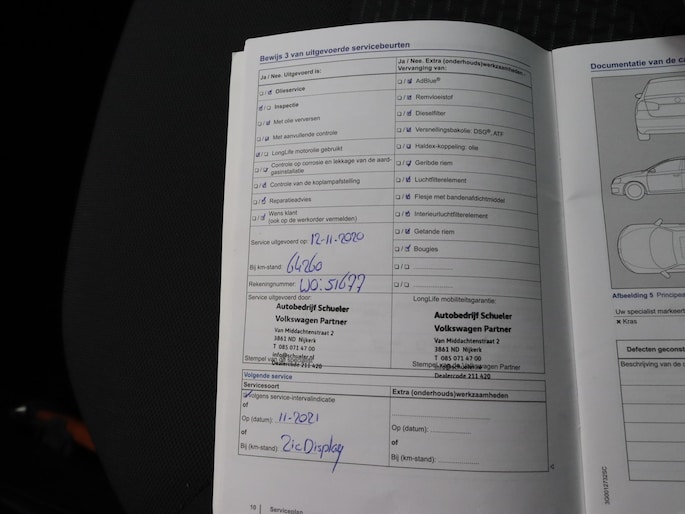 Bewijs 3 van uitgevoerde servicebeurten
Ja / Nee. Uitgevoerd is:
☐ / ☑ Olieservice
☑ / ☐ Inspectie
☐ / ☑ Met olie verversen
☐ / ☑ Met aanvullende controle
☑ / ☐ LongLife motorolie gebruikt
☐ / ☑ Controle op corrosie en lekkage van de aard-
gasinstallatie
☐ / ☑ Controle van de koplampafstelling
☐ / ☑ Reparatieadvies
☐ / ☑ Wens klant
(ook op de werkorder vermelden)
Service uitgevoerd op: 12-11-2020
Bij km-stand: 64260
Rekeningnummer: WO:51677
Service uitgevoerd door:
Autobedrijf Schueler
Volkswagen Partner
Van Middachtenstraat 2
3861 ND Nijkerk
T 085 071 47 00
info@schueler.nl
Dealercode 211 420
Stempel van de
Ja / Nee. Extra (onderhouds)werkzaamheden -
Vervanging van:
☐ / ☑ AdBlue®
☐ / ☑ Remvloeistof
☐ / ☑ Dieselfilter
☐ / ☑ Versnellingsbakolie: DSG®, ATF
☐ / ☐ Haldex-koppeling: olie
☐ / ☑ Geribde riem
☐ / ☑ Luchtfilterelement
☐ / ☑ Flesje met bandenafdichtmiddel
☐ / ☑ Interieurluchtfilterelement
☐ / ☑ Getande riem
☐ / ☑ Bougies
☐ / ☐ ....................
☐ / ☐ ....................
LongLife mobiliteitsgarantie:
Autobedrijf Schueler
Volkswagen Partner
Van Middachtenstraat 2
3861 ND Nijkerk
T 085 071 47 00
info@schueler
Stempel van de Volkswagen Partner
Dealercode 211 420
Volgende service
Servicesoort
☑ Volgens service-intervalindicatie
of
Op (datum): 11-2021
of
Bij (km-stand): Zie Display
Extra (onderhouds)werkzaamheden
Op (datum): ....................
of
Bij (km-stand): ....................
10 Serviceplan
Documentatie van de ca
Afbeelding 5 Principea
Uw specialist markeert
× Kras
Defecten geconst
Beschrijving van de
3G0012732SC